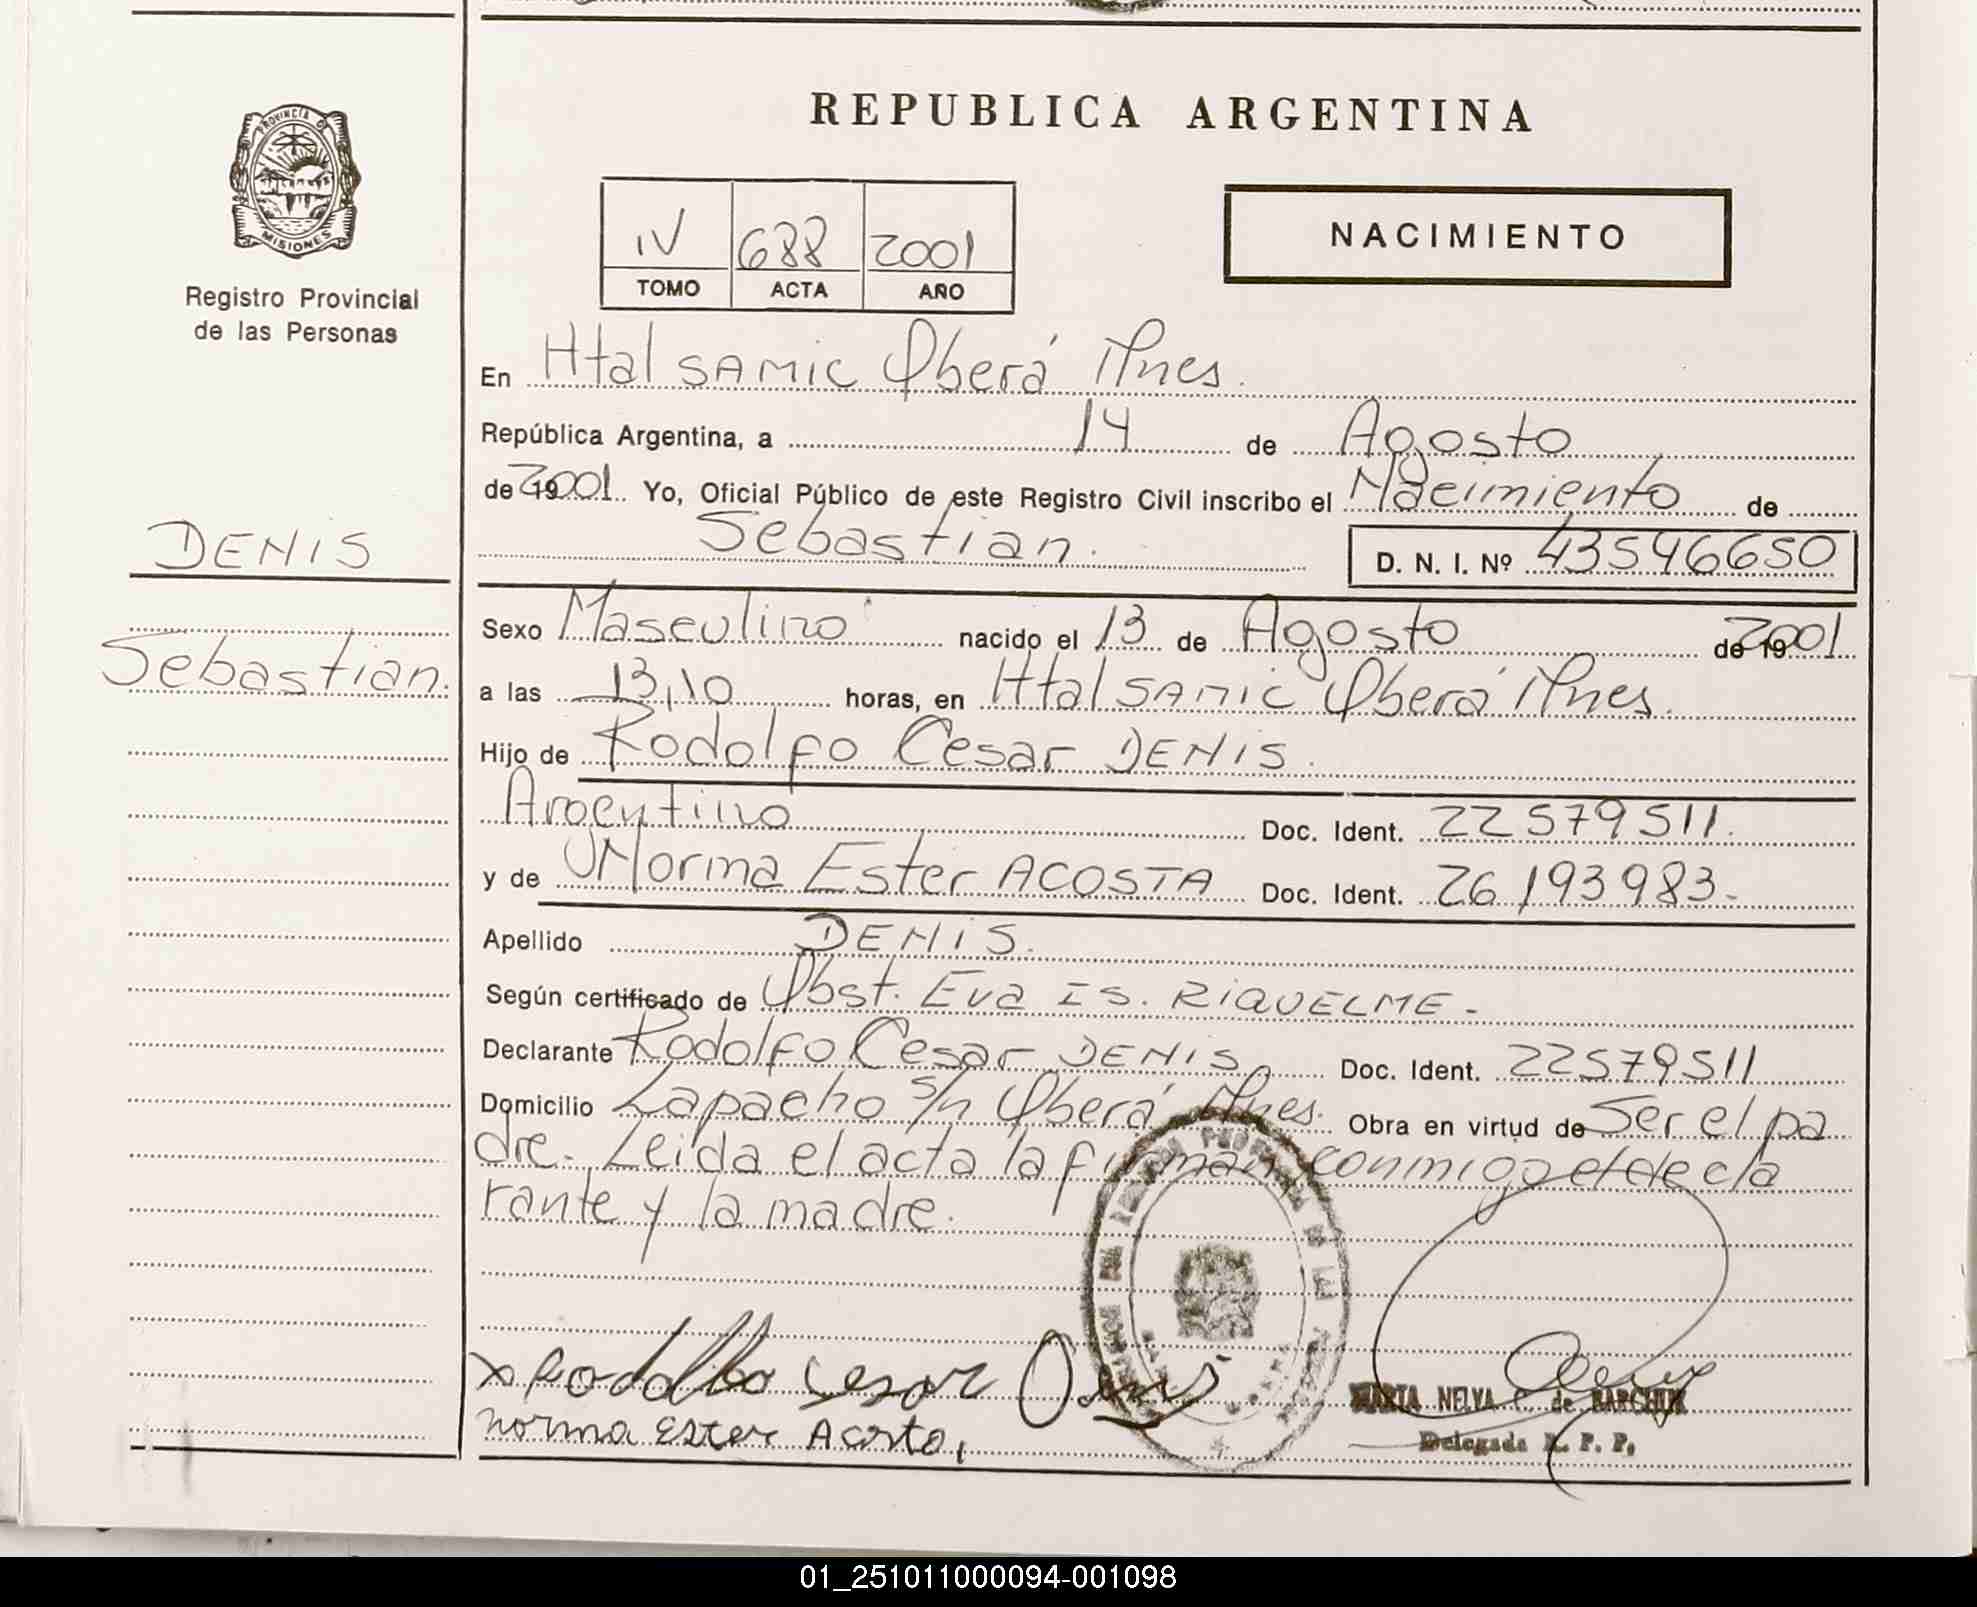 REPUBLICA ARGENTINA
PROVINCIA DE
MISIONES
Registro Provincial
de las Personas
IV 688 2001
TOMO ACTA AÑO
NACIMIENTO
En Htal SAMIC Oberá Mnes.
República Argentina, a 14 de Agosto
de 19 2001 Yo, Oficial Público de este Registro Civil inscribo el Nacimiento de
Sebastian. D. N. I. Nº 43546650
DENIS
Sebastian.
Sexo Masculino nacido el 13 de Agosto de 19 2001
a las 13,10 horas, en Htal SAMIC Oberá Mnes.
Hijo de Rodolfo Cesar DENIS.
Argentino Doc. Ident. 22579511.
y de Norma Ester ACOSTA Doc. Ident. 26193983.-
Apellido DENIS.
Según certificado de Obst. Eva Is. RIQUELME.-
Declarante Rodolfo Cesar DENIS Doc. Ident. 22579511
Domicilio Lapacho s/n Oberá Mnes. Obra en virtud de Ser el pa
dre. Leida el acta la firman conmigo el decla
rante y la madre.
x Rodolfo Cesar Denis
Norma Ester Acosta,
MARTA NELVA C. de BARCHUK
Delegada R. P. P.
01_251011000094-001098